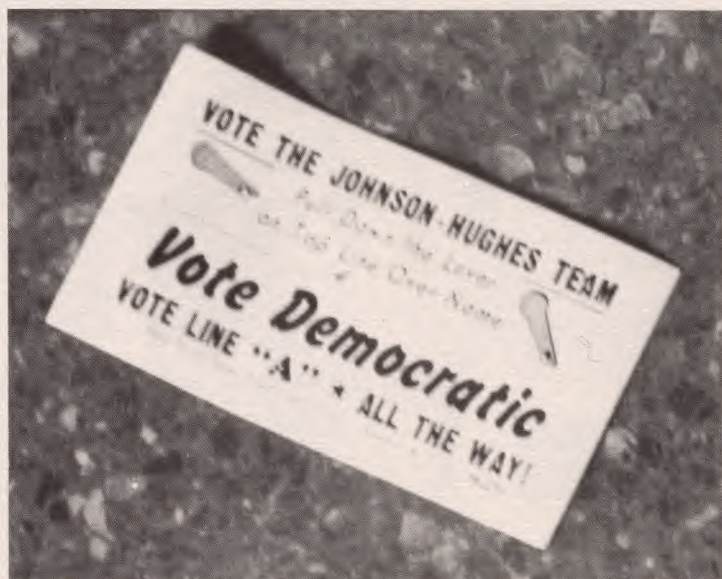 VOTE THE JOHNSON-HUGHES TEAM
Pull Down the Lever
on Top Line Over Name
Vote Democratic
VOTE LINE "A" ALL THE WAY!